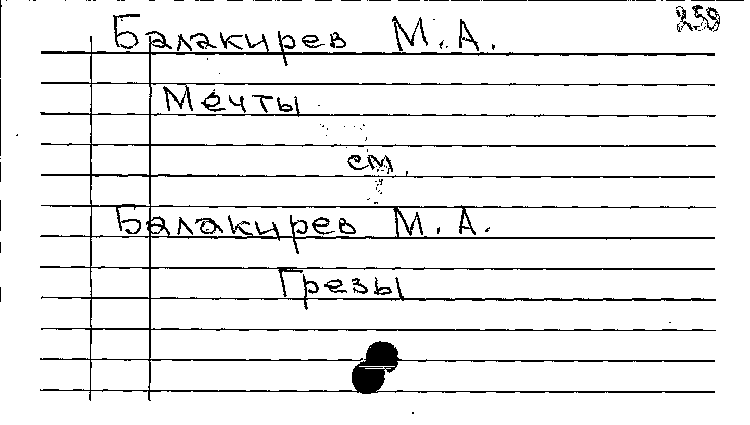 259
Балакирев М.А.
Мечты
см.
Балакирев М.А.
Грезы